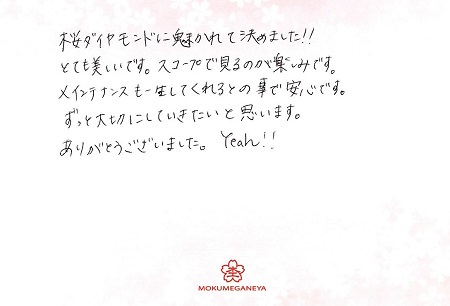 桜ダイヤモンドに魅かれて決めました!!
とても美しいです。スコープで見るのが楽しみです。
メインテナンスも一生してくれるとの事で安心です。
ずっと大切にしていきたいと思います。
ありがとうございました。Yeah!!
MOKUMEGANEYA